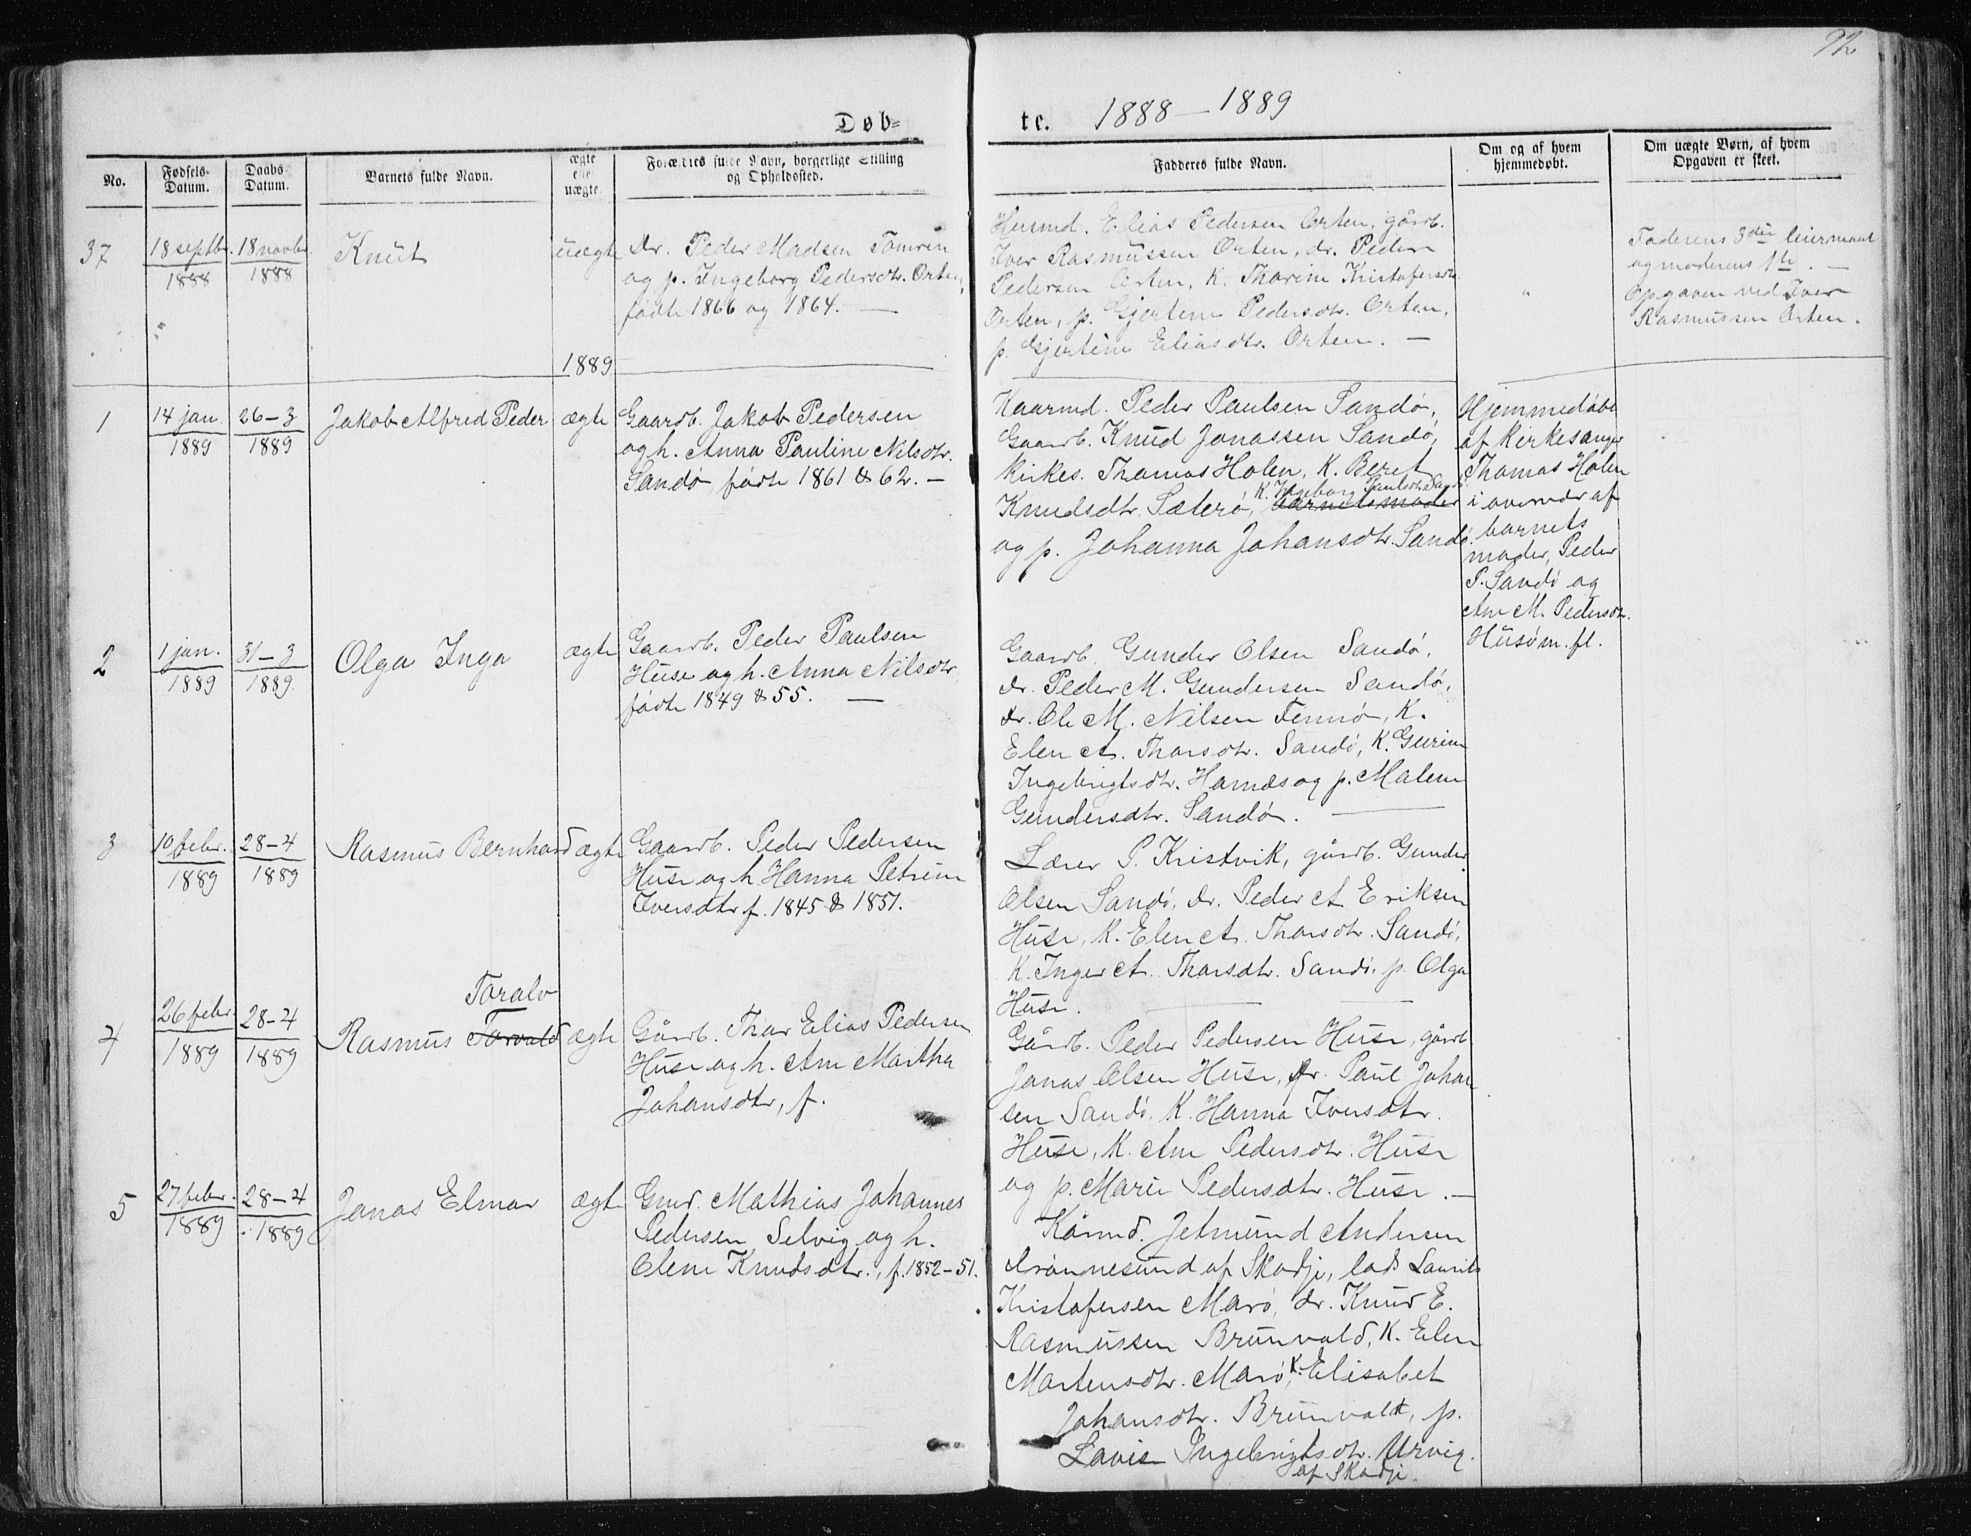 92
Døb=
te. 1888 — 1889
No.
Fødsels-
Datum.
Daabs-
Datum.
Barnets fulde Navn.
ægte
eller
uægte.
Forældres fulde Navn, borgerlige Stilling
og Opholdssted.
Fadderes fulde Navn.
Om og af hvem
hjemmedøbt.
Om uægte Børn, af hvem
Opgaven er skeet.
37
18 septbr.
1888
18 novbr
1888
Knut
uægte
Dr. Peder Madsen Tomren
og p. Ingeborg Pedersdtr. Orten,
fødte 1866 og 1864. —
Husmd. Elias Pedersen Orten, gårdb.
Iver Rasmussen Orten, dr. Peder
Pedersen Orten, K. Thorine Kristofersdtr
Orten, p. Gjertine Pedersdtr. Orten,
p. Gjertine Eliasdtr. Orten. —
"
Faderens 3die leiermaal
og moderens 1te. —
Opgaven ved Iver
Rasmussen Orten.
1889
1
14 jan.
1889
26-3
1889
Jakob Alfred Peder
ægte
Gaardb. Jakob Pedersen
og h. Anna Pauline Nilsdtr.
Sandø fødte 1861 & 62. —
Kaarmd. Peder Paulsen Sandø,
Gaardb. Knud Jonassen Sandø,
kirkes. Thomas Holen, K. Beret
K. Ingeborg Paulsdtr. Sandø
Knudsdtr. Sæterø, barnets moder
og p. Johanna Johansdtr. Sandø
Hjemmedøbt
af kirkesanger
Thomas Holen
i overvær af
barnets
moder, Peder
P. Sandø og
Ane M. Pedersdtr.
Husø m. fl.
2
1 jan.
1889
31-3
1889.
Olga Inga
ægte
Gaardb. Peder Paulsen
Huse og h. Anna Nilsdtr
fødte 1849 & 55. —
Gaardb. Gunder Olsen Sandø,
dr. Peder M. Gundersen Sandø,
dr. Ole M. Nilsen Fennø, K.
Elen A. Thorsdtr. Sandø, K. Gurine
Ingebrigtsdtr. Harnæs og p. Malene
Gundersdtr. Sandø. —
3
10 febr.
1889
28-4
1889
Rasmus Bernhard
ægte
Gaardb. Peder Pedersen
Huse og h Hanna Petrine
Iversdtr f. 1845 & 1851.
Lærer P. Kristvik, gårdb. Gunder
Olsen Sandø, dr. Peder A Eriksen
Huse, K. Elen A. Thorsdtr. Sandø,
K. Inger A. Thorsdtr. Sandø, p. Olga
Huse.
4
26 febr.
1889
28-4
1889
Toralv
Rasmus Torvald
ægte
Gårdb. Thor Elias Pedersen
Huse og h. Ane Martha
Johansdtr, f.
Gårdb. Peder Pedersen Huse, gårdb
Jonas Olsen Huse, dr. Paul Johan
sen Sandø, K. Hanna Iversdtr.
Huse, K. Ane Pedersdtr. Huse
og p. Marie Pedersdtr. Huse. —
5
27 febr.
1889
28-4
1889
Jonas Elmar
ægte
Gmd. Mathias Johannes
Pedersen Selvig og h.
Olene Knudsdtr., f. 1852-51.
Kårmd. Jetmund Andersen
Drønnesund af Skodje, lods Laurits
Kristofersen Marø, dr. Knud E.
Rasmussen Brunvold, K. Elen
Martensdtr. Marø, K. Elisabet
Johansdtr. Brunvold, p.
Lovise Ingebrigtsdtr. Urvig.
af Skodje.